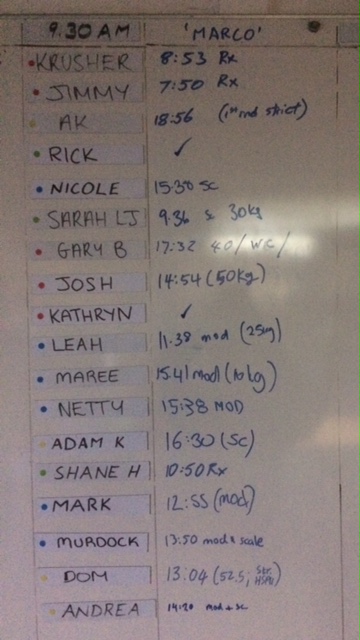 9.30 AM 'MARCO'
KRUSHER 8:53 Rx
JIMMY 7:50 Rx
AK 18:56 (1st rnd strict)
RICK ✓
NICOLE 15:38 SC
SARAH LJ 9.36 30kg
GARY B 17:32 40/WC/
JOSH 14:54 (50kg)
KATHRYN ✓
LEAH 11.38 mod (25kg)
MAREE 15.41 mod (10kg)
NETTY 15:38 MOD
ADAM K 16:30 (SC)
SHANE H 10:50 Rx
MARK 12:55 (mod)
MURDOCK 13:50 mod & scale
DOM 13:04 (52.5; Str. HSPU)
ANDREA 14:20 mod + sc